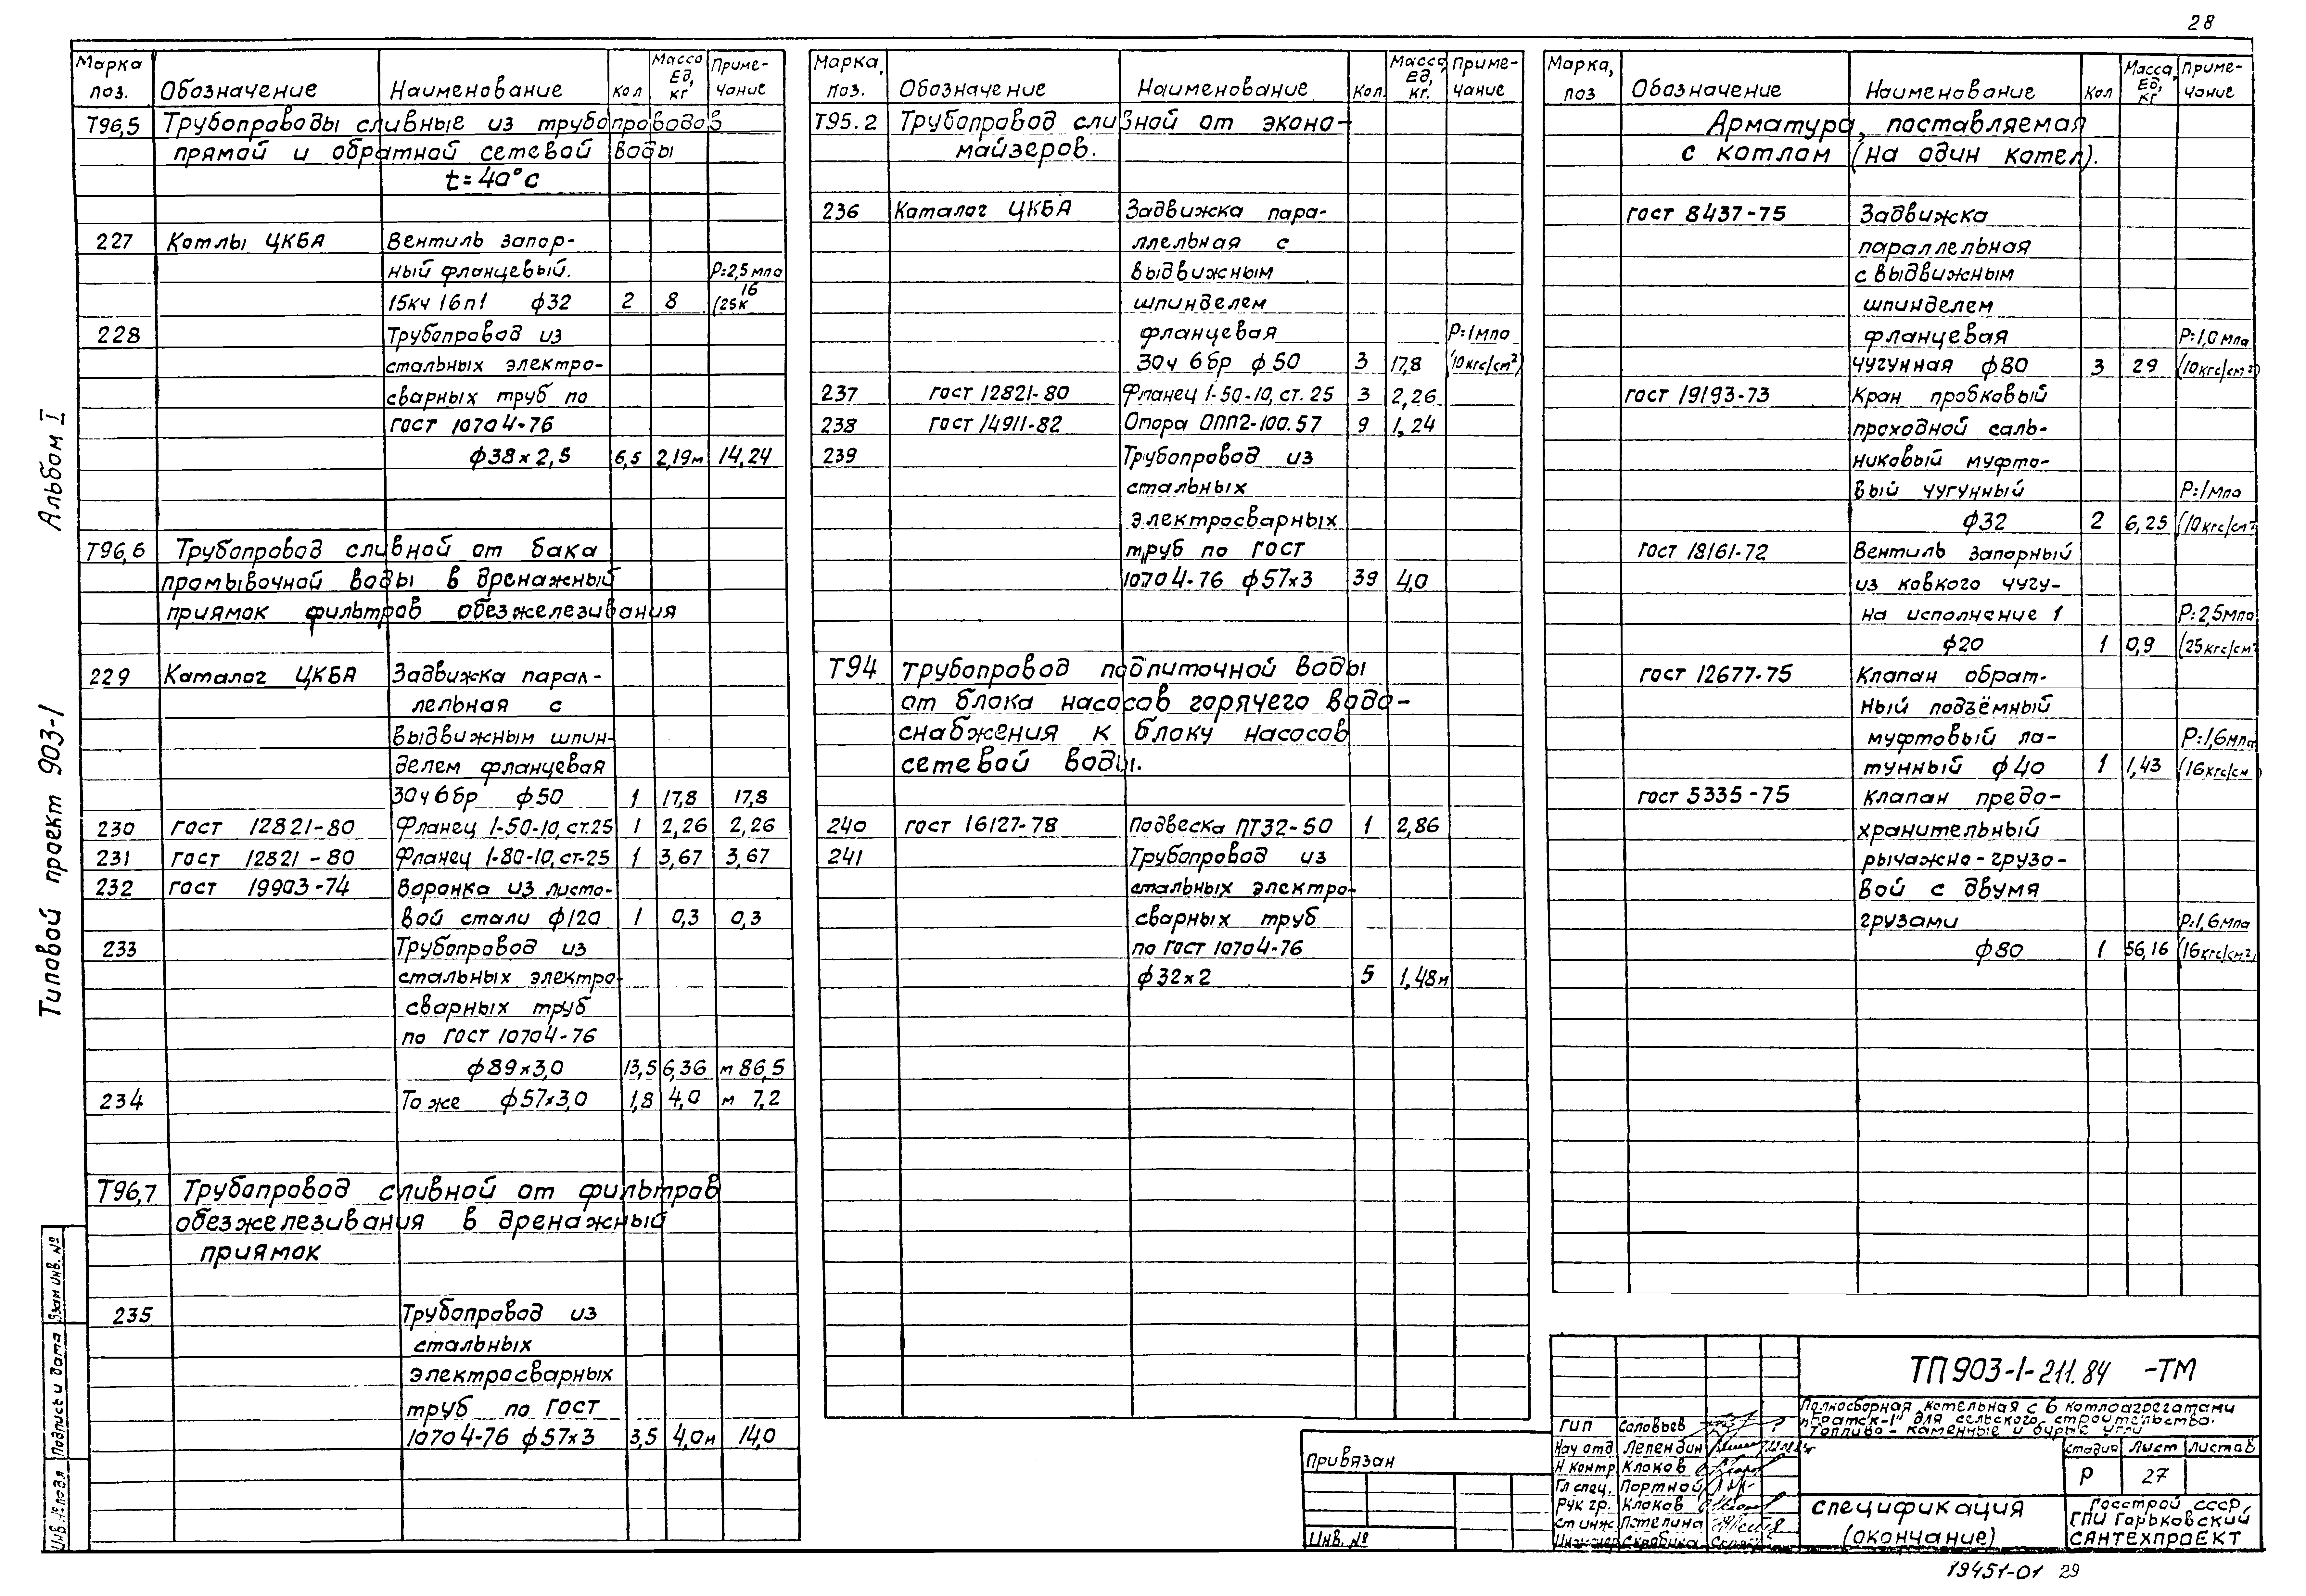 28
Альбом I
Типовой проект 903-1
Взам инв. №
Подпись и дата
Инв. № подл
Марка поз. Обозначение Наименование Кол Масса Ед, кг Приме-чание
Т96,5 Трубопроводы сливные из трубопроводов
прямой и обратной сетевой воды
t=40°С
227 Котлы ЦКБА Вентиль запор-
ный фланцевый. Р=2,5 мпа
15кч 16п1 ф32 2 8 (25к 16
228 Трубопровод из
стальных электро-
сварных труб по
ГОСТ 10704-76
ф38×2,5 6,5 2,19м 14,24
Т96,6 Трубопровод сливной от бака
промывочной воды в дренажный
приямок фильтров обезжелезивания
229 Каталог ЦКБА Задвижка парал-
лельная с
выдвижным шпин-
делем фланцевая
30ч6бр ф50 1 17,8 17,8
230 ГОСТ 12821-80 Фланец 1-50-10, ст.25 1 2,26 2,26
231 ГОСТ 12821-80 Фланец 1-80-10, ст-25 1 3,67 3,67
232 ГОСТ 19903-74 Воронка из листо-
вой стали ф120 1 0,3 0,3
233 Трубопровод из
стальных электро-
сварных труб
по ГОСТ 10704-76
ф89×3,0 13,5 6,36 м 86,5
234 То же ф57×3,0 1,8 4,0 м 7,2
Т96,7 Трубопровод сливной от фильтров
обезжелезивания в дренажный
приямок
235 Трубопровод из
стальных
электросварных
труб по ГОСТ
10704-76 ф57×3 3,5 4,0м 14,0
Марка, поз. Обозначение Наименование Кол. Масса Ед, кг. Приме-чание
Т95.2 Трубопровод сливной от эконо-
майзеров.
236 Каталог ЦКБА Задвижка пара-
ллельная с
выдвижным
шпинделем
фланцевая Р=1мпа
30ч 6бр ф50 3 17,8 (10кгс/см²)
237 ГОСТ 12821-80 Фланец 1-50-10, ст. 25 3 2,26
238 ГОСТ 14911-82 Опора ОПП2-100.57 9 1,24
239 Трубопровод из
стальных
электросварных
труб по ГОСТ
10704-76 ф57×3 39 4,0
Т94 Трубопровод подпиточной воды
от блока насосов горячего водо-
снабжения к блоку насосов
сетевой воды.
240 ГОСТ 16127-78 Подвеска ПТ32-50 1 2,86
241 Трубопровод из
стальных электро-
сварных труб
по ГОСТ 10704-76
ф32×2 5 1,48м
Марка, поз Обозначение Наименование Кол Масса, Ед, кг Приме-чание
Арматура, поставляемая
с котлом (на один котел).
ГОСТ 8437-75 Задвижка
параллельная
с выдвижным
шпинделем
фланцевая Р=1,0мпа
чугунная ф80 3 29 (10кгс/см²
ГОСТ 19193-73 Кран пробковый
проходной саль-
никовый муфто-
вый чугунный Р=1мпа
ф32 2 6,25 (10кгс/см²
ГОСТ 18161-72 Вентиль запорный
из ковкого чугу-
на исполнение 1 Р=2,5мпа
ф20 1 0,9 (25кгс/см²
ГОСТ 12677-75 Клапан обрат-
ный подъёмный
муфтовый ла- Р=1,6мпа
тунный ф40 1 1,43 (16кгс/см)
ГОСТ 5335-75 Клапан предо-
хранительный
рычажно-грузо-
вой с двумя
грузами Р=1,6мпа
ф80 1 56,16 (16кгс/см²)
Привязан
Инв. №
ТП903-1-211.84 -ТМ
Полносборная котельная с 6 котлоагрегатами
„Братск-1" для сельского строительства.
Топливо - каменные и бурые угли
ГИП Соловьев
Нач отд Лепендин
Н контр Клоков
Гл спец. Портной
Рук гр. Клоков
Ст инж Потелина
Инженер Скрабина
Стадия Лист Листов
Р 27
Спецификация
(окончание)
Госстрой СССР
ГПИ Горьковский
САНТЕХПРОЕКТ
19451-01 29